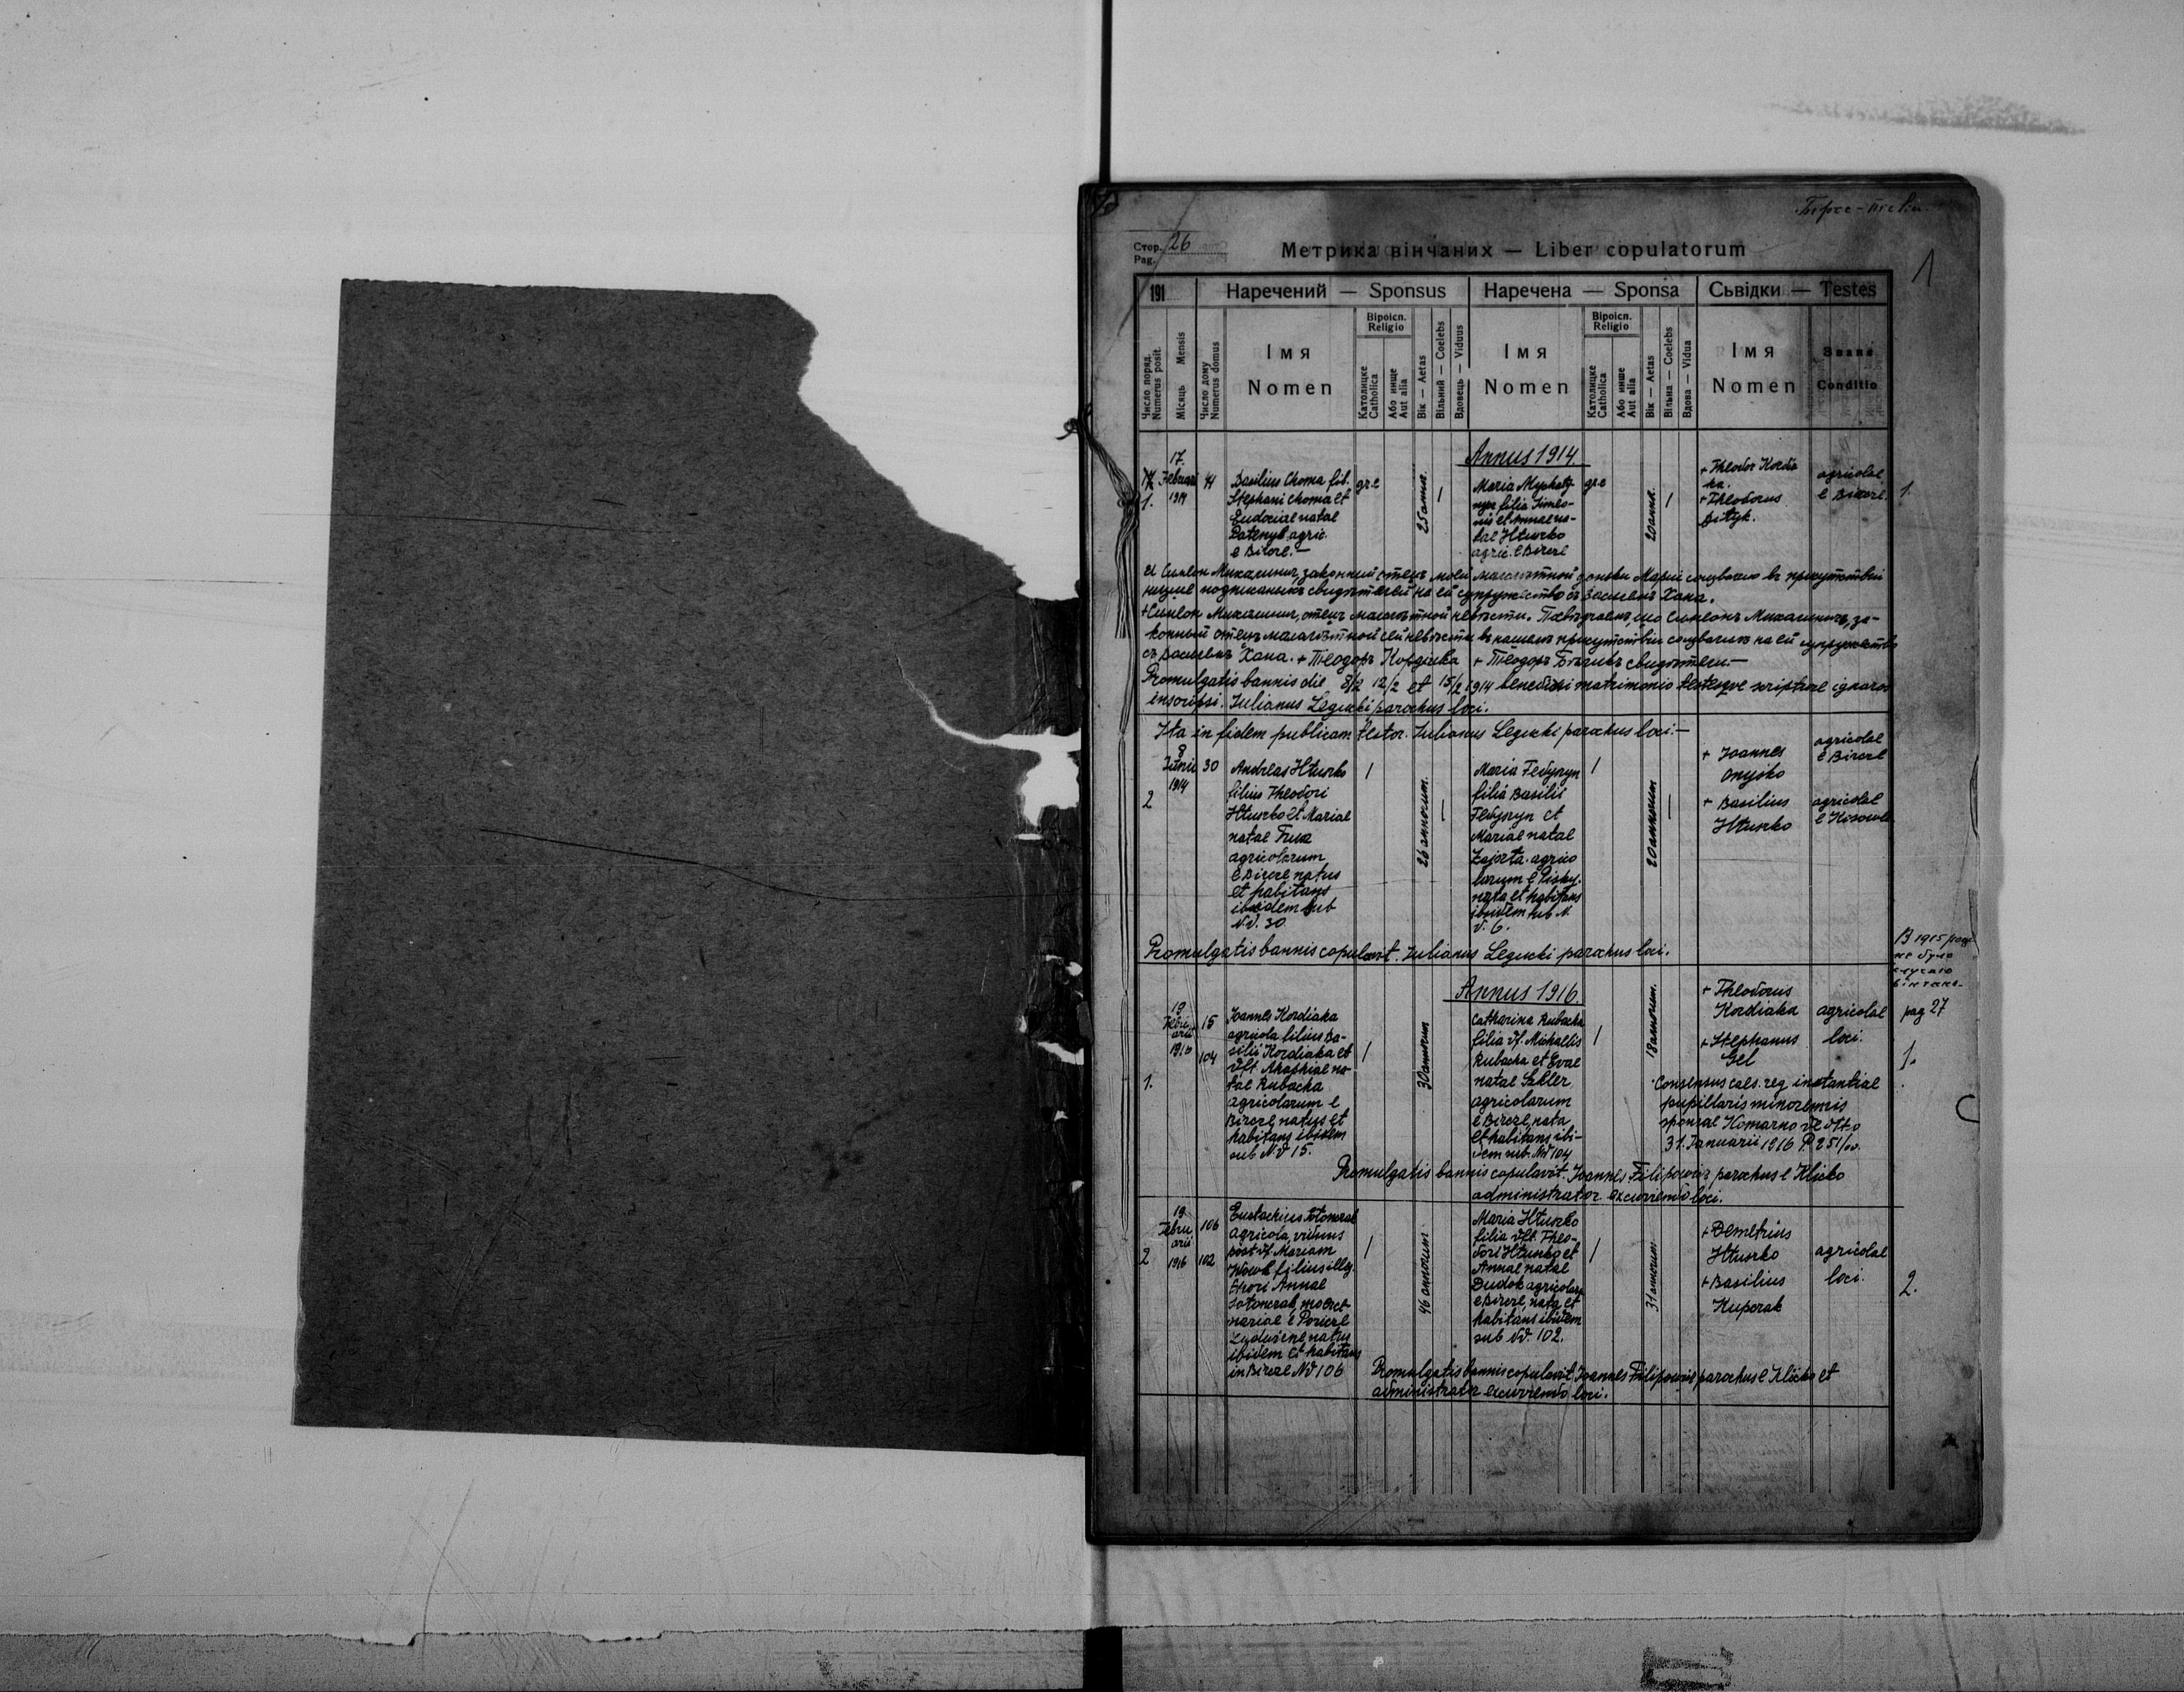 Стор. 26
Pag.
Метрика вінчаних — Liber copulatorum
1
191
Наречений — Sponsus
Наречена — Sponsa
Сьвідки — Testes
Число поряд. Numerus posit.
Місяць Mensis
Число дому Numerus domus
Імя
Nomen
Віроісп.
Religio
Католицке Catholica
Або инще Aut alia
Вік — Aetas
Вільний — Coelebs
Вдовець — Viduus
Імя
Nomen
Віроісп.
Religio
Католицке Catholica
Або инше Aut alia
Вік — Aetas
Вільна — Coelebs
Вдова — Vidua
Імя
Nomen
Званє
Conditio
Annus 1914.
17.
Februarii
1914
1.
44
Basilius Choma fil.
Stephani Choma et
Eudociae natae
agric.
e Bircze.—
gr.c
25 annor.
Maria Mychaly-
nyn filia Simeo-
nis et Annae na-
tae Htuszko
agric. e Bircze
gr.c
20 ann.
+ Theodor Kordia
ka.
+ Theodorus
Bityk.
agricolae
e Bircze.
1.
Я Симеон Михалинич, законний отець моей малолѣтной доньки Маріи соизволяю въ присутствіи
низше подписаныхъ свидѣтелей на ей супружество съ Василемъ Хома.
+ Симеон Михалинич, отець малолѣтной невѣсты. Посвѣдчаемъ, що Симеонъ Михалиничъ, за-
конный отець малолѣтной сей невѣсты въ нашемъ присутствіи соизволилъ на ей супружество
съ Василемъ Хома. + Теодоръ Кордіяка + Теодоръ свидѣтели.—
Promulgatis bannis die 8/2 12/2 et 15/2 1914 benedixi matrimonio testesque scripturae ignaros
inscripsi. Julianus Legucki parochus loci.
Ita in fidem publicam testor. Julianus Legucki parochus loci.—
2
8
Junii
1914
30
Andreas Htuszko
filius Theodori
Htuszko et Mariae
natae
agricolarum
e Bircze natus
et habitans
ibidem sub
N.d. 30.
26 annorum.
Maria Fedyszyn
filia Basilii
Fedyszyn et
Mariae natae
Zajszta. agrico
larum e
nata et habitans
ibidem sub N.
d. 6.
20 annorum
+ Joannes
Onysko
agricolae
e Bircze
+ Basilius
Htuszko
agricolae
Promulgatis bannis copulavit. Julianus Legucki parochus loci.
В 1915 році
не було
случаю
вінчаня.
Annus 1916.
1.
19
Febru-
arii
1916
15
104
Joannes Kordiaka
agricola filius Ba-
silii Kordiaka et
dft. Ahaphiae na-
tae Rubacha
agricolarum e
Bircze, natus et
habitans ibidem
sub Nd 15.
30 annorum
Catharina Rubacha
filia df. Michaelis
Rubacha et Evae
natae Szkler
agricolarum
e Bircze, nata
et habitans ibi-
dem sub. Nd 104
18 annorum.
+ Theodorus
Kordiaka
+ Stephanus
Gel
agricolae
loci.
pag 27
1.
Consensus caes. reg. instantiae
pupillaris minorennis
sponsae Komarno de dtto
31. Januarii 1916 P. 251/00.
Promulgatis bannis copulavit. Joannes Filipowicz parochus e Klicko
administrator excurrendo loci.
2
19
Febru
arii
1916
106
102
Eustachius
agricola, viduus
post df. Mariam
Wowk filius illeg.
thori Annae
natus
ibidem et habitans
in Bircze Nd 106
46 annorum
Maria Htuszko
filia dft. Theo-
dori Htuszko et
Annae natae
Dudok agricolarum
e Bircze, nata et
habitans ibidem
sub Nd. 102.
31 annorum
+ Demetrius
Htuszko
+ Basilius
Kuperak
agricolae
loci.
2.
Promulgatis bannis copulavit Joannes Filipowicz parochus e Klicko et
administrator excurrendo loci.